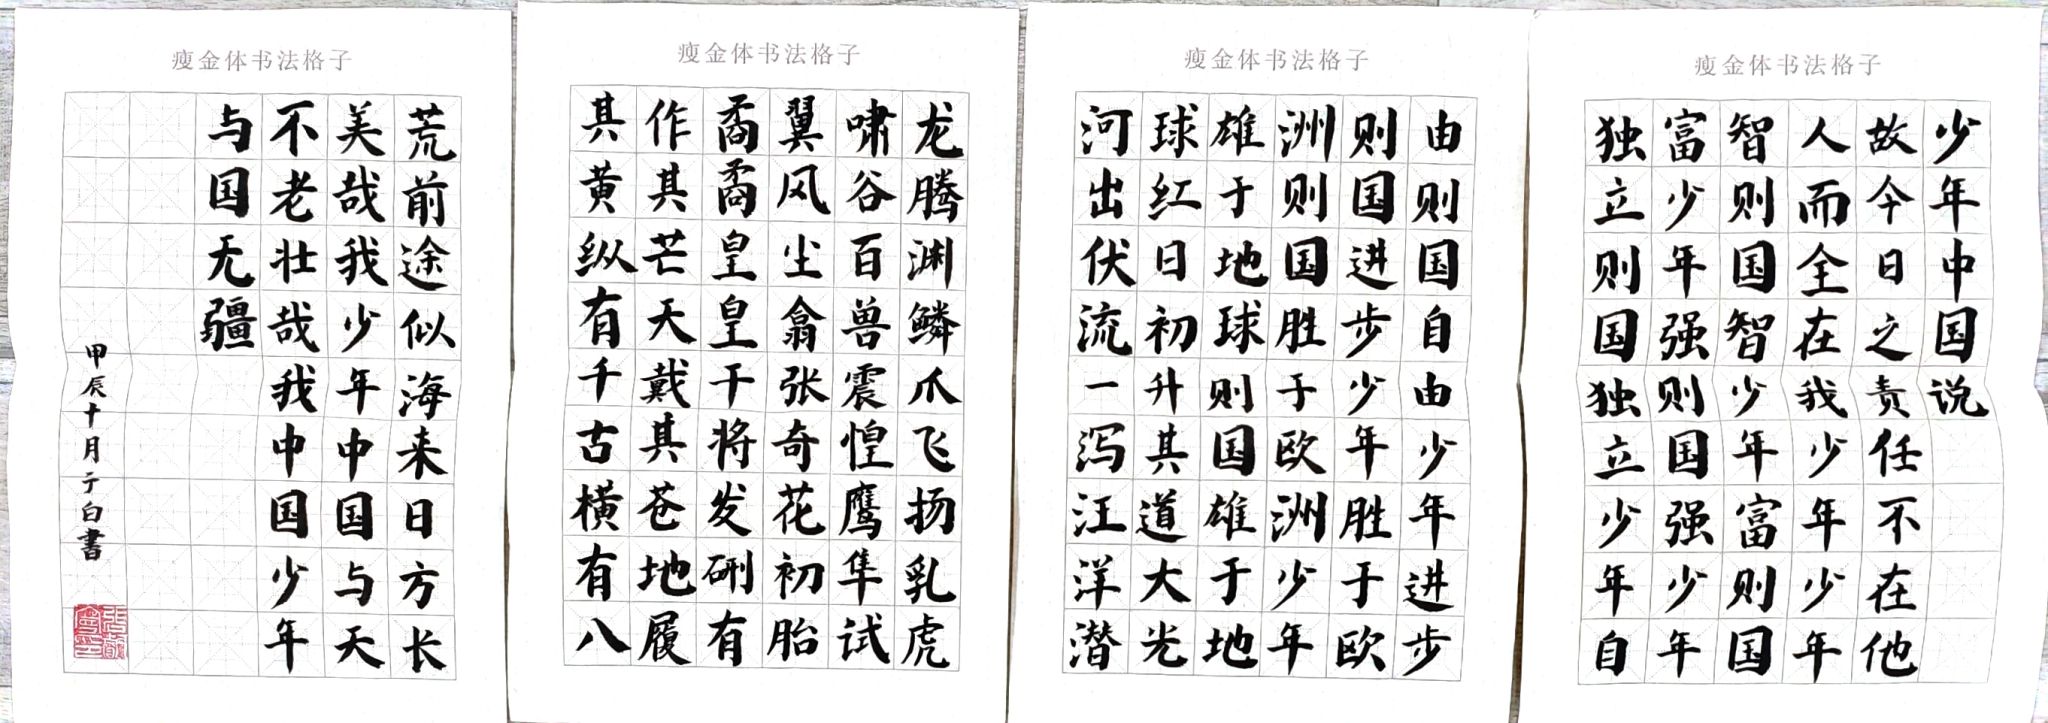 瘦金体书法格子
少年中国说
故今日之责任不在他
人而全在我少年少年
智则国智少年富则国
富少年强则国强少年
独立则国独立少年自
瘦金体书法格子
由则国自由少年进步
则国进步少年胜于欧
洲则国胜于欧洲少年
雄于地球则国雄于地
球红日初升其道大光
河出伏流一泻汪洋潜
瘦金体书法格子
龙腾渊鳞爪飞扬乳虎
啸谷百兽震惶鹰隼试
翼风尘翕张奇花初胎
矞矞皇皇干将发硎有
作其芒天戴其苍地履
其黄纵有千古横有八
瘦金体书法格子
荒前途似海来日方长
美哉我少年中国与天
不老壮哉我中国少年
与国无疆
甲辰十月亍白書